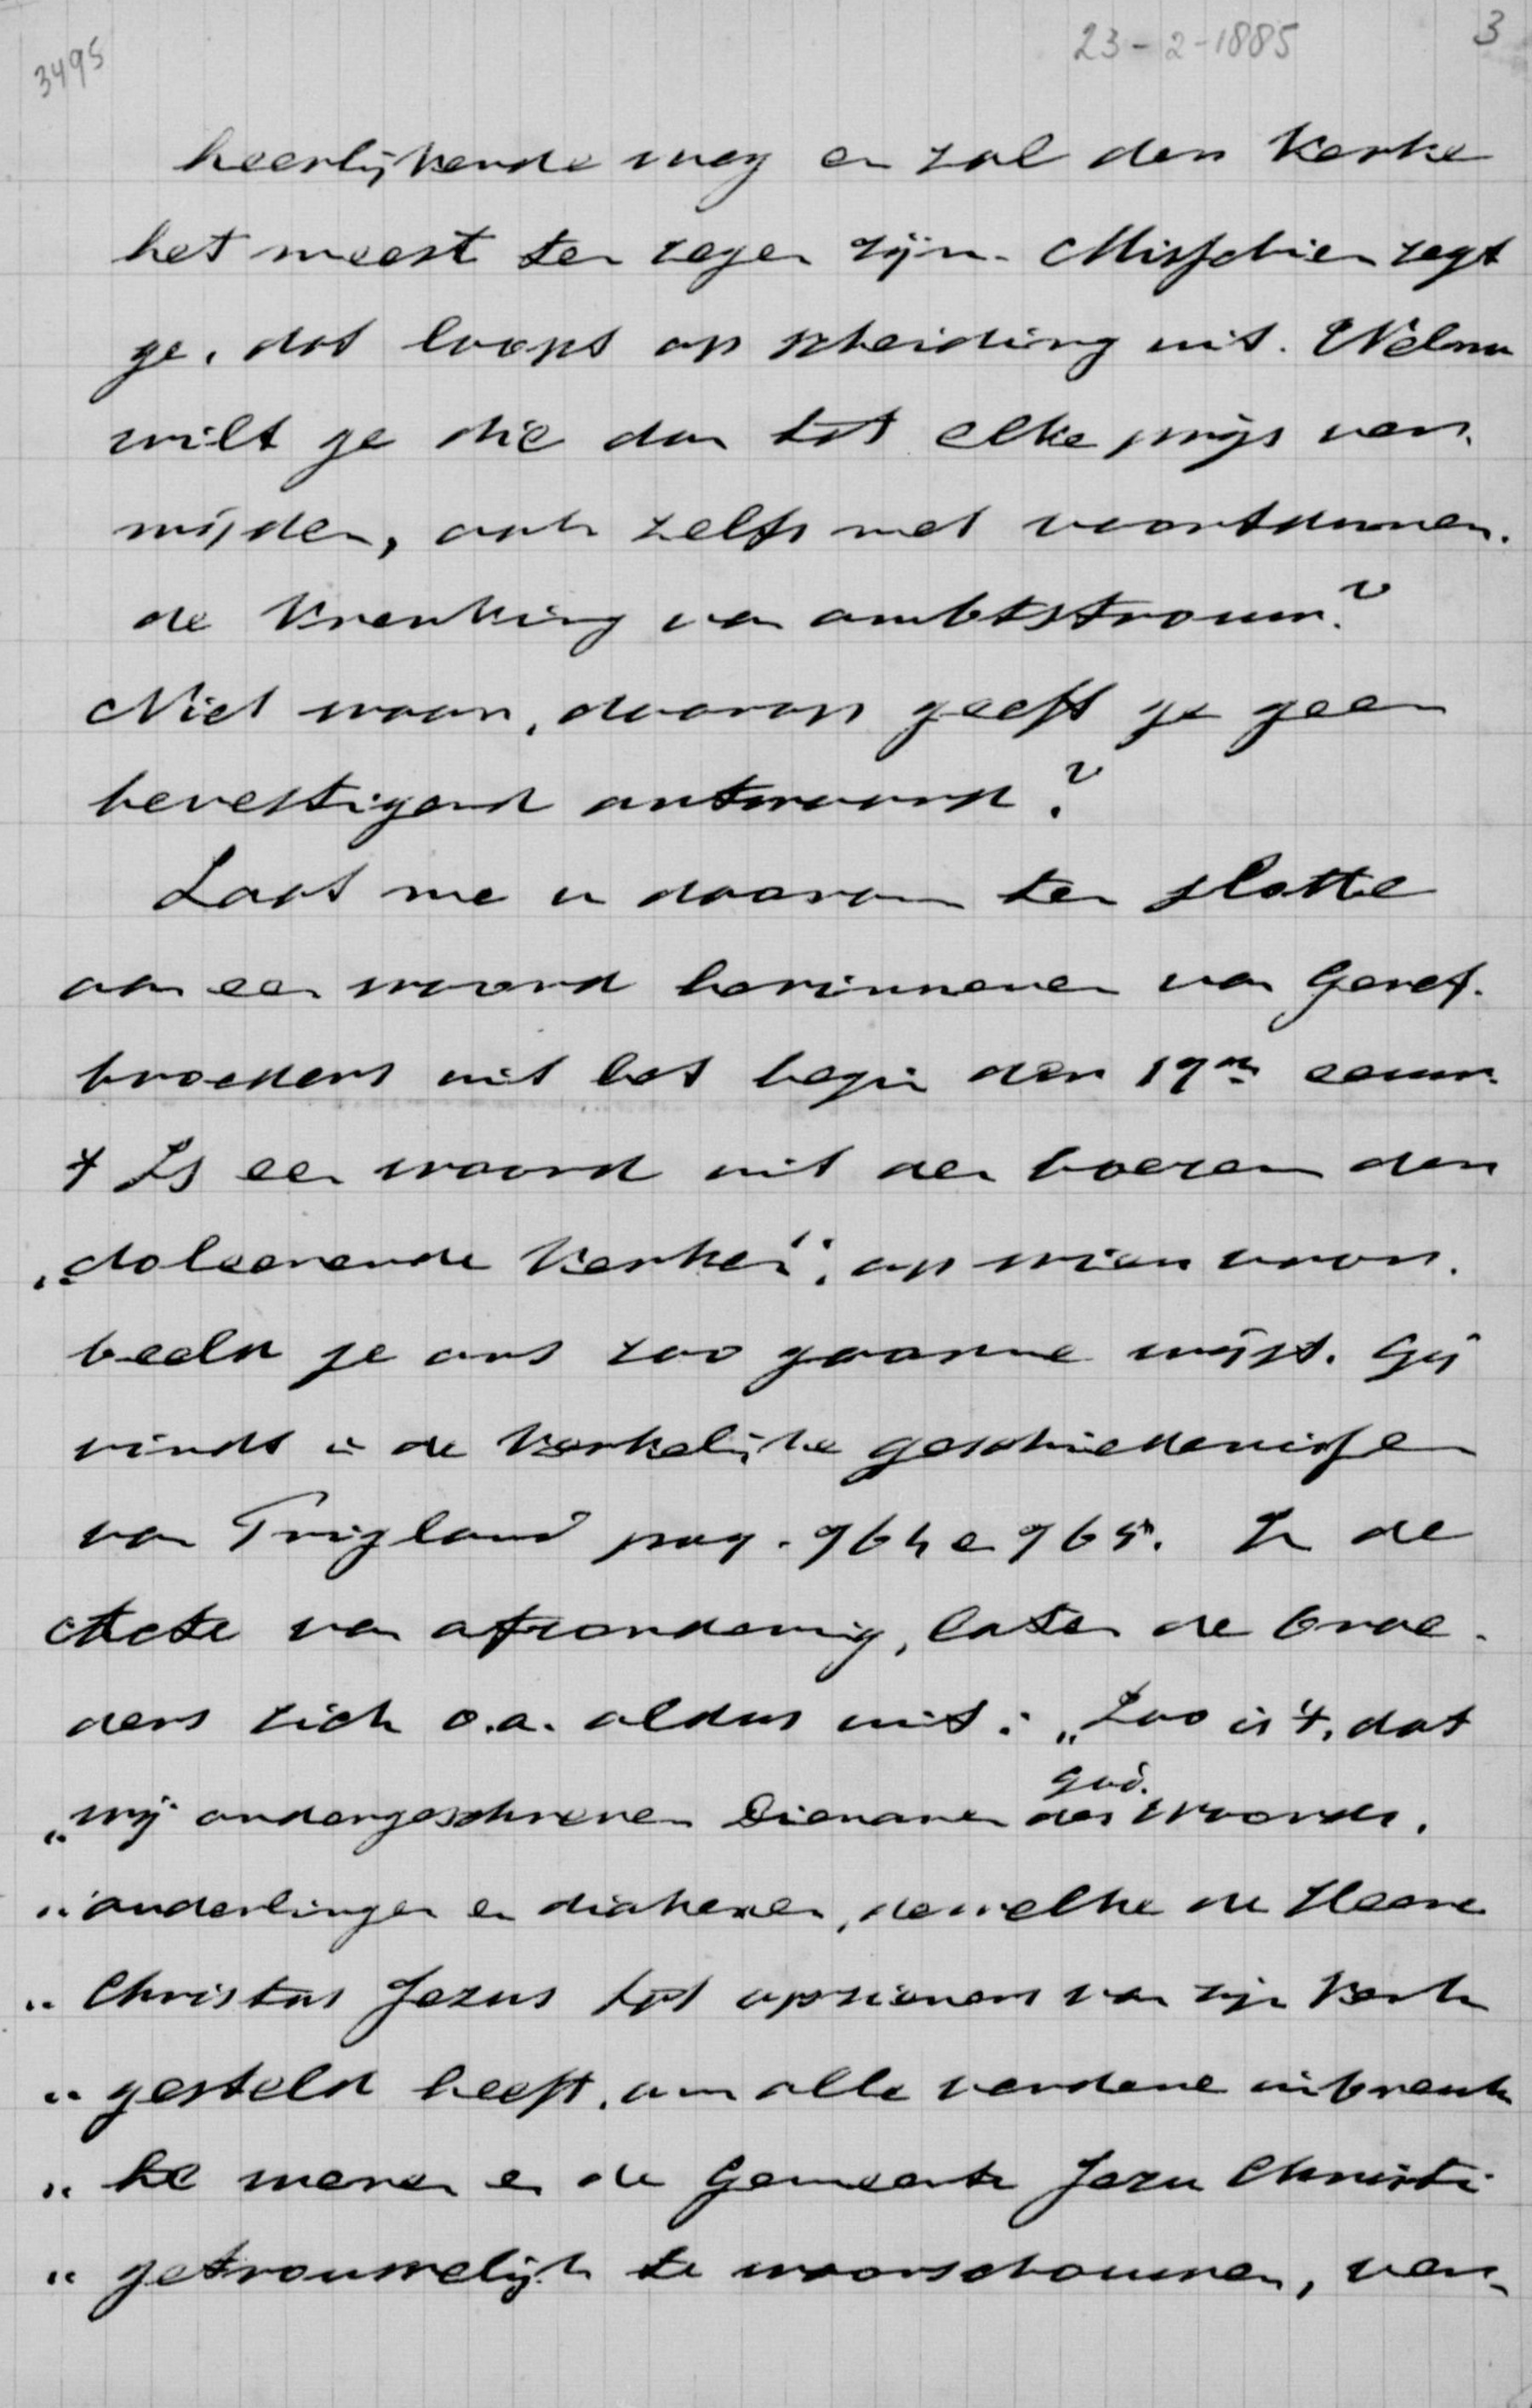 3495
23-2-1885
3
heerlijkende weg en zal den Kerke
het meest ten zegen zijn. Misschien zegt
ge, dat loopt op scheiding uit. Welnu
wilt ge die dan tot elke prijs ver-
mijden, ook zelfs met voortduren-
de Krenking van ambtstrouw?
Niet waar, daarop geeft ge geen
bevestigend antwoord?
Laat me u daarom ten slotte
aan een woord herinneren van Geref.
broeders uit het begin der 17de eeuw.
't Is een woord uit den boezem der
„doleerende Kerken", op wier voor-
beeld ge ons zoo gaarne wijst. Gij
vindt in de Kerkelijke geschiedenissen
van Trigland pag. 964 en 965. In de
Acte van afzondering, laten de broe-
ders zich o.a. aldus uit: „Zoo is 't, dat
„wij ondergeschreven Dienaren des God. Woords,
„ouderlingen en diakenen, dewelke de Heere
„Christus Jezus tot opzieners van zijn Kerk
„gesteld heeft, om alle verdere inbreuk
„te weren en de Gemeente Jezu Christi
„getrouwelijk te waarschouwen, ver-